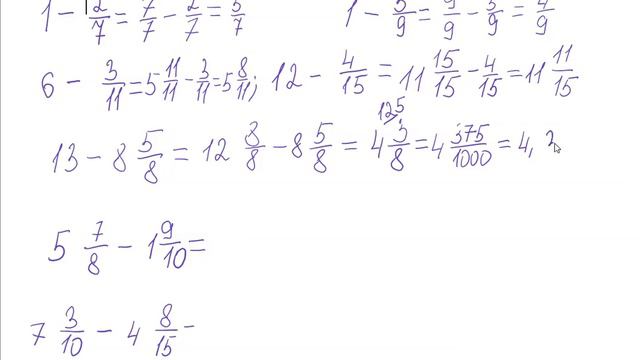 1 - 2/7 = 7/7 - 2/7 = 5/7    1 - 5/9 = 9/9 - 5/9 = 4/9
6 - 3/11 = 5 11/11 - 3/11 = 5 8/11; 12 - 4/15 = 11 15/15 - 4/15 = 11 11/15
125
13 - 8 5/8 = 12 8/8 - 8 5/8 = 4 3/8 = 4 375/1000 = 4,
5 7/8 - 1 9/10 =
7 3/10 - 4 8/15 -